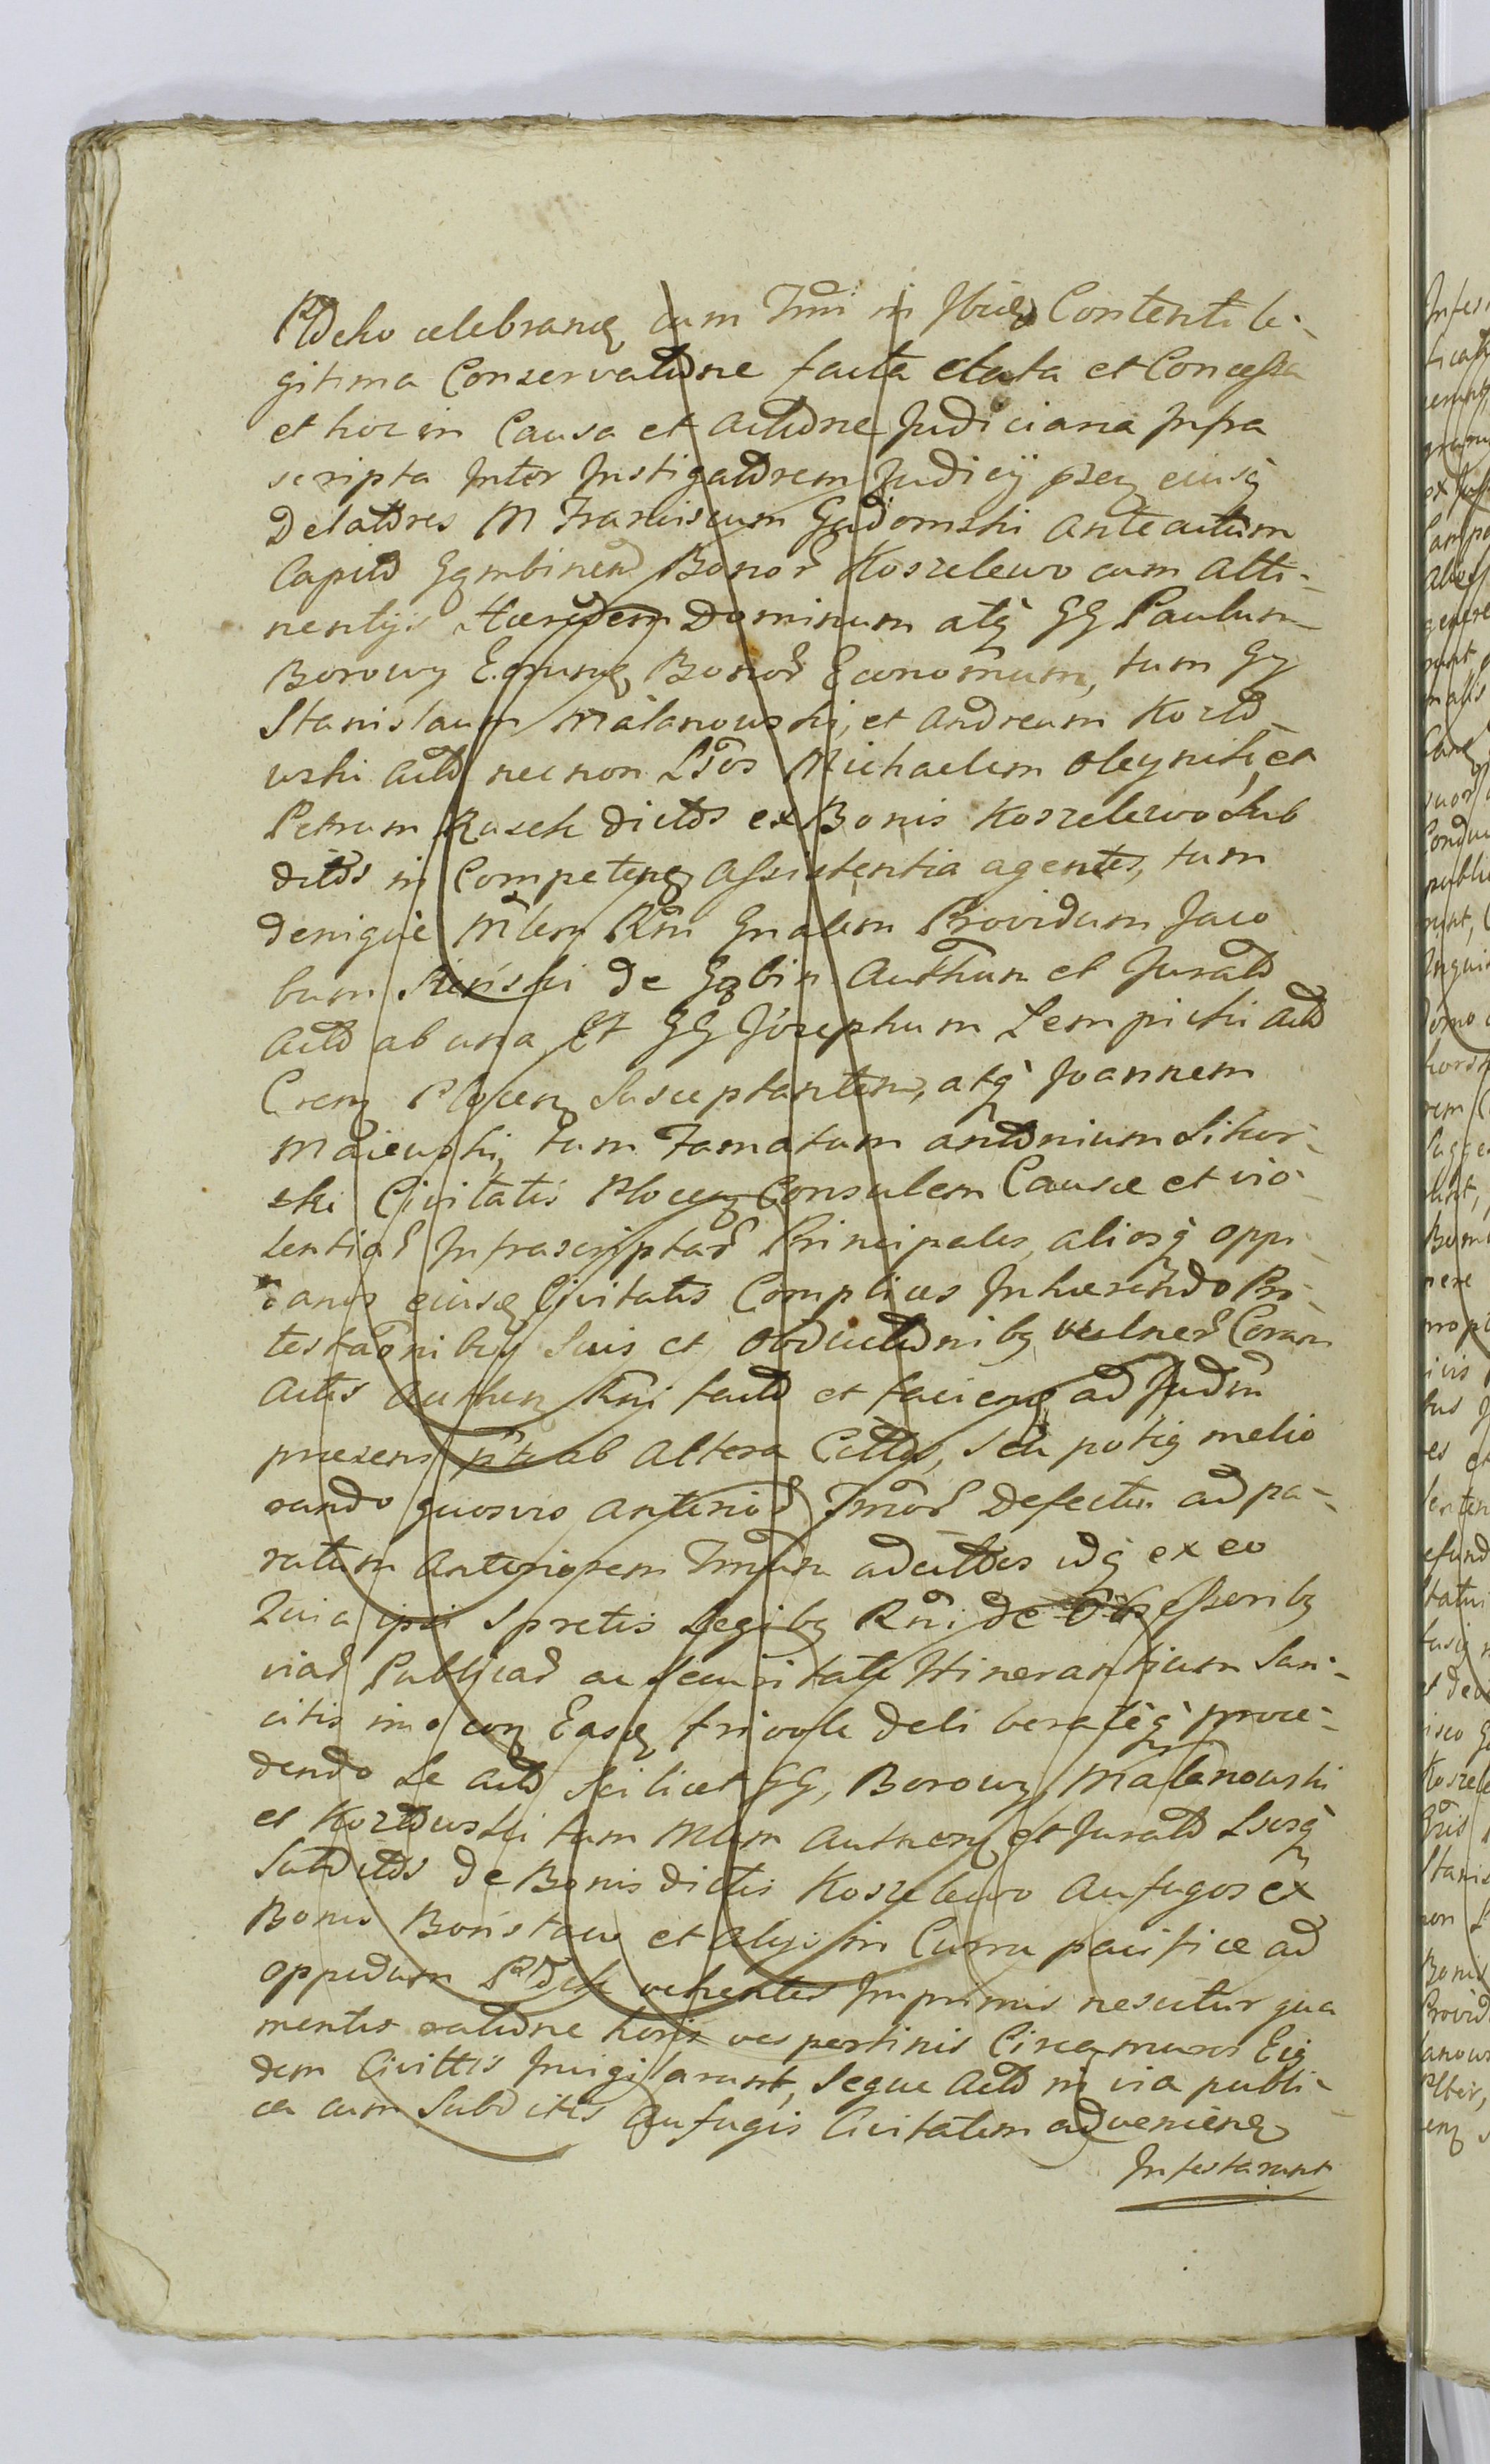 celebran cum Tnni in Contenti le-
gitima Conservatione facta data et Concessa
et hoc in Causa et actione Judiciaria Infra
scripta Inter Instigatorem Judicij eiusq
Delatores M Franciscum Gadomski ante actum
Capitd Gąmbinen Bonor Koszelewo cum atti-
nentijs Hæredem Dominum atq GG Paulum
Borowy Bonor Economum, tum GG
Stanislaum Małanowski, et Andream Kozto
wski actd necnon Michaelem Oleynik, et
Petrum Rusek dictos ex Bonis Koszelewo Sub
ditos in Competen assistentia agentes, tum
denique Rni Gnalem Providum Jaco
bum de Gąbin et Juratd
actd ab una Et GG Josephum Lempicki actd
Cren Plocen Susceptantem, atq Joannem
Maiewski, tum Famatum antonium Sikor-
ski Civitatis Plocen Consulem Causæ et vio-
lentiar Infrascriptar Principales, aliosq oppi-
danos eiusd Civitatis Complices Inhærendo Pro-
testaonibus Suis et obductionibq vulner Coram
actis Authen factd et facien ad Judm
præsens ab altera Cittos, Seu potiq melio
rando quosvis anterior Tmor Defectus ad pa-
ratum anteriorem adcittos idq ex eo
Quia ipsi Spretis Legibq Rni de
viar Publicar ac Securitate Itinerantium San-
citis imo con Easd frivole deliberateq proce-
dendo Se actd Scilicet GG, Borowy, Małanowski
et Koztowski tum Authen et Juratd
Subditos de Bonis dictis Koszelewo aufugos ex
Bonis et alijs in Curru pacifice ad
oppidum vehentes Imprimis nescitur qua
mentis ratione horis vespertinis Circa muros Eiq
dem Civittis Invigilarunt, Seque actd in via publi-
ca cum Subditis aufugis Civitatem advenien
Infestarunt